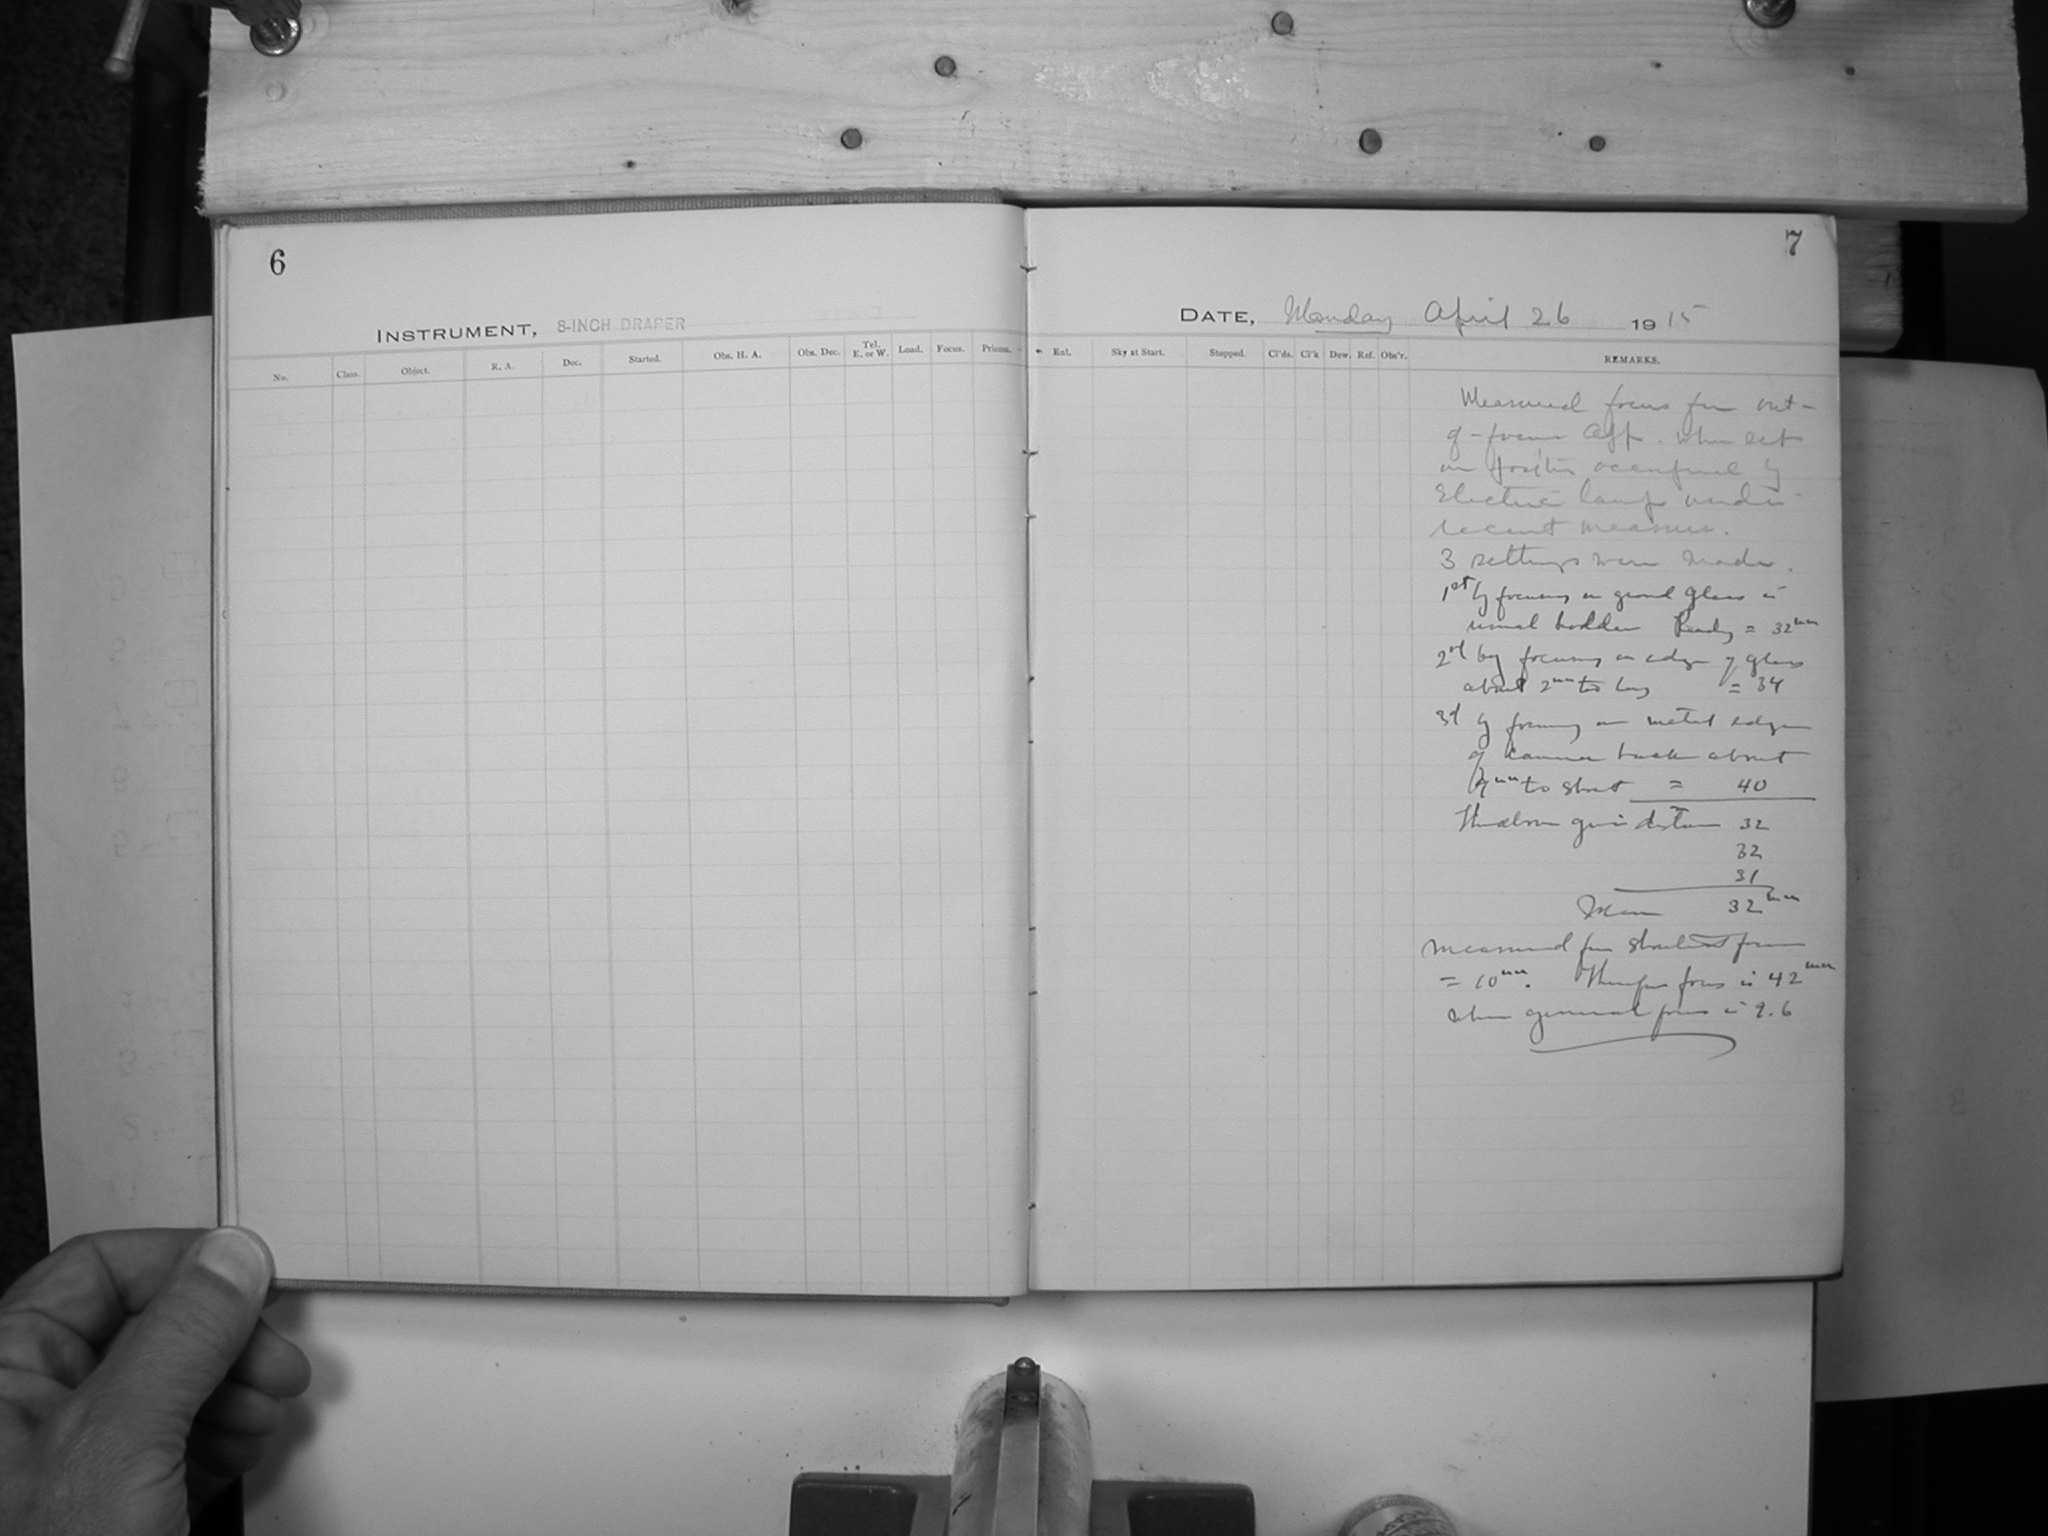 6
7
INSTRUMENT, 8-INCH DRAPER
DATE, Monday April 26 1915
No. Class. Object. R. A. Dec. Started. Obs. H. A. Obs. Dec. Tel. E. or W. Load. Focus. Prisms.
Enl. Sky at Start. Stopped. Cl'ds. Cl'k Dew. Ref. Obs'r. REMARKS.
Measured focus for out-
of-focus App. when set
on position occupied by
Electric lamp under
recent measures.
3 settings were made.
1st by focusing on ground glass in
usual holder Ready = 32mm
2nd by focusing on edge of glass
about 2mm too long = 34
3d by focusing on metal edge
of camera back about
mm to short = 40
The above give distance 32
32
31
Mean 32mm
measured for focus
= 10mm. Therefore focus is 42mm
when general focus is 9.6